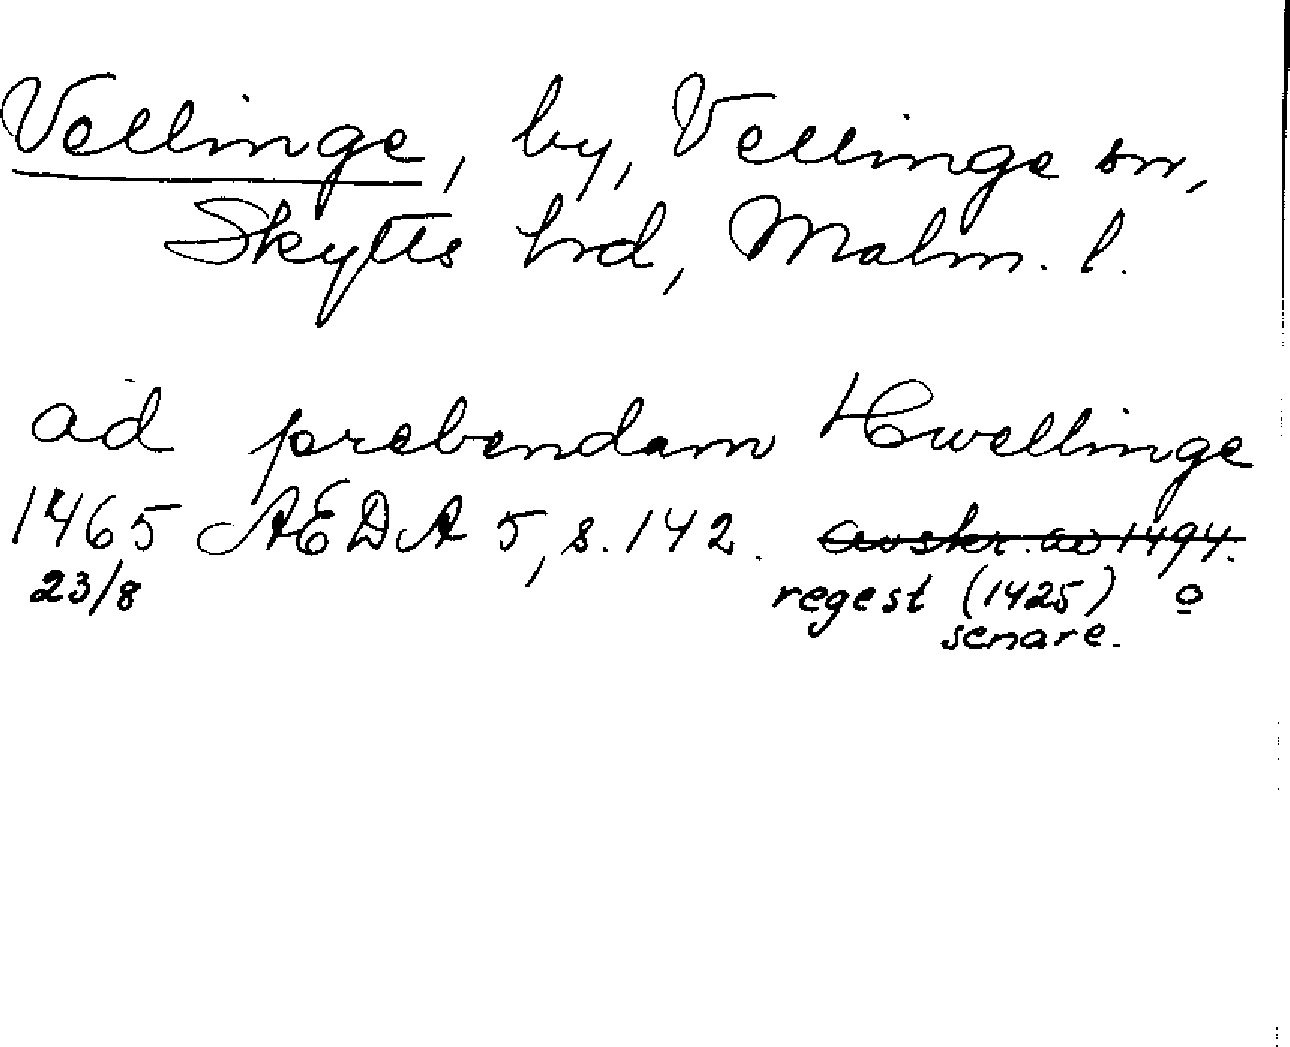 Vellinge, by, Vellinge sn,
Skytts hrd, Malm. l.
ad prebendam Hwellinge
1465 AEDA 5, s. 142. avskr. av 1494.
23/8 regest (1425) o
senare.